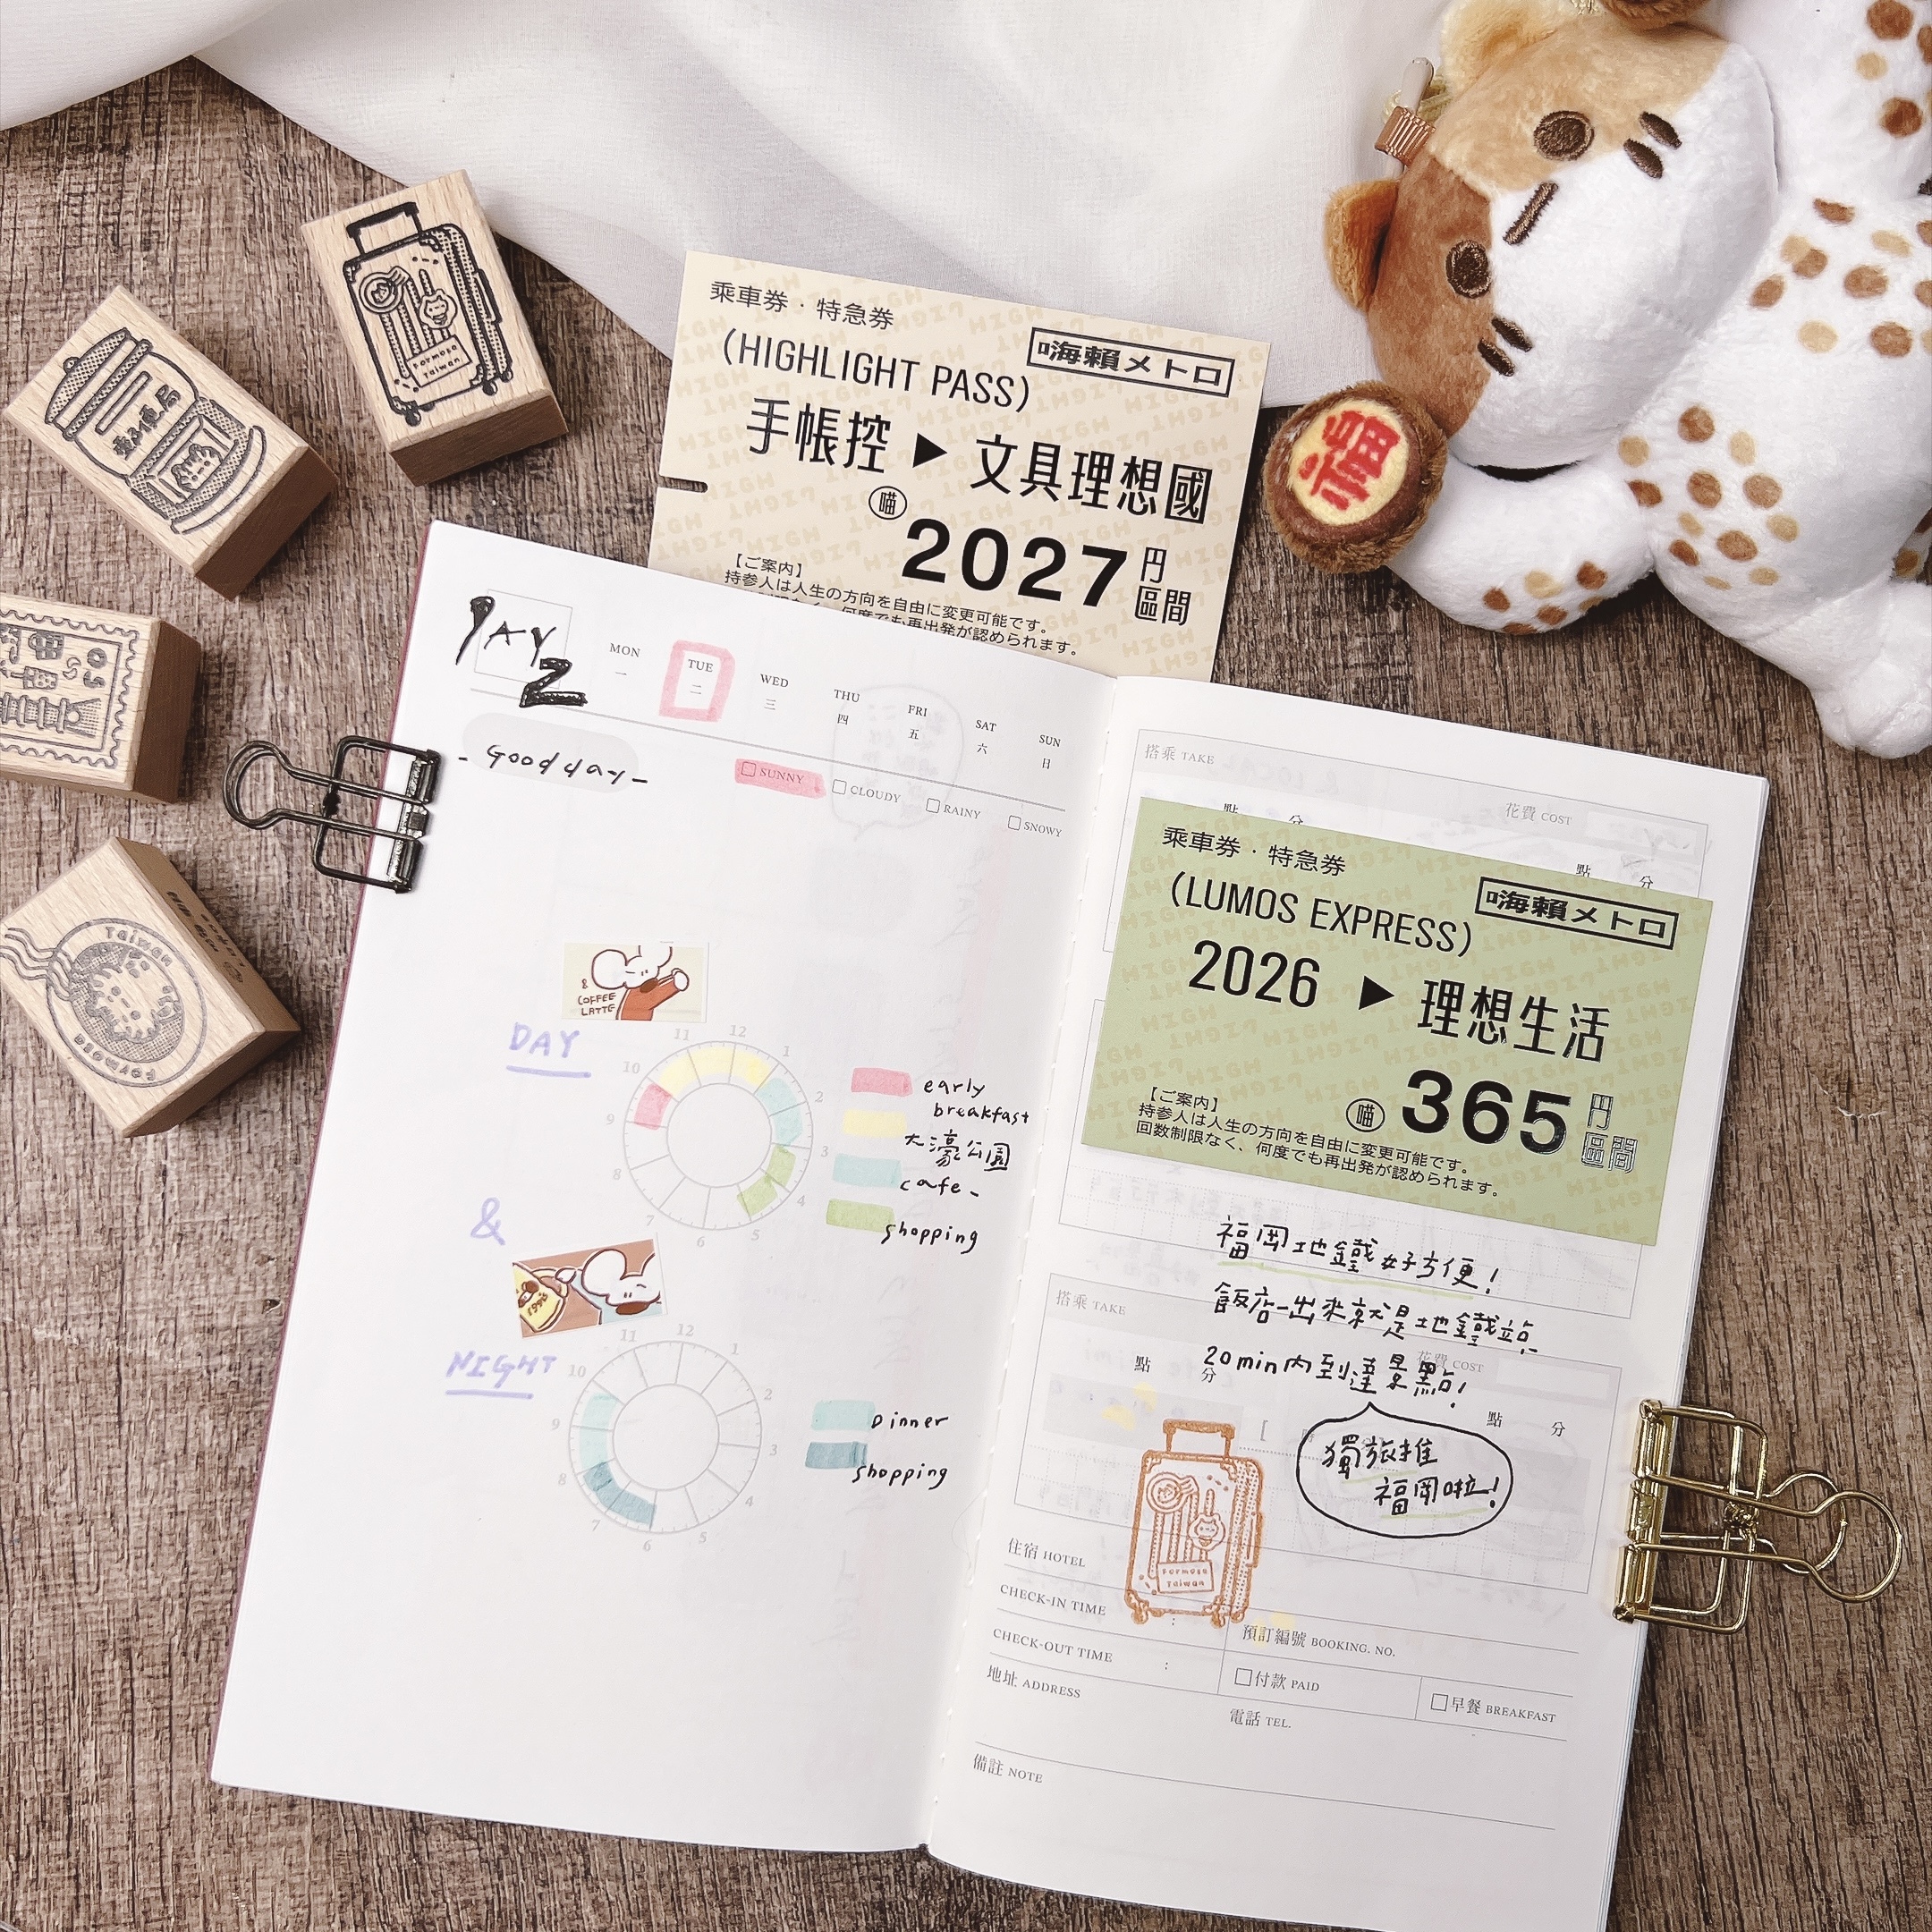 Formosa
Taiwan
乘車券·特急券
(HIGHLIGHT PASS)
嗨賴メトロ
手帳控 ▶ 文具理想國
喵 2027 円
區間
【ご案内】
持参人は人生の方向を自由に変更可能です。
何度でも再出発が認められます。
福
Taiwan
Formosa
DAY
2
MON 一
TUE 二
WED 三
THU 四
FRI 五
SAT 六
SUN 日
- Good day -
SUNNY
CLOUDY
RAINY
SNOWY
&
COFFEE
LATTE
DAY
11 12 1 2 3 4 5 6 7 8 9 10
early
breakfast
大濠公園
cafe -
shopping
&
NIGHT
11 12 1 2 3 4 5 6 7 8 9 10
Dinner
shopping
搭乘 TAKE
花費 COST
點 分
點 分
乘車券·特急券
(LUMOS EXPRESS)
嗨賴メトロ
2026 ▶ 理想生活
喵 365 円
區間
【ご案内】
持参人は人生の方向を自由に変更可能です。
回数制限なく、何度でも再出発が認められます。
福岡地鐵好方便!
飯店一出來就是地鐵站
20min內到達景點!
搭乘 TAKE
花費 COST
點 分
點 分
獨旅推
福岡啦!
Formosa
Taiwan
住宿 HOTEL
CHECK-IN TIME :
預訂編號 BOOKING. NO.
CHECK-OUT TIME :
付款 PAID
早餐 BREAKFAST
地址 ADDRESS
電話 TEL.
備註 NOTE